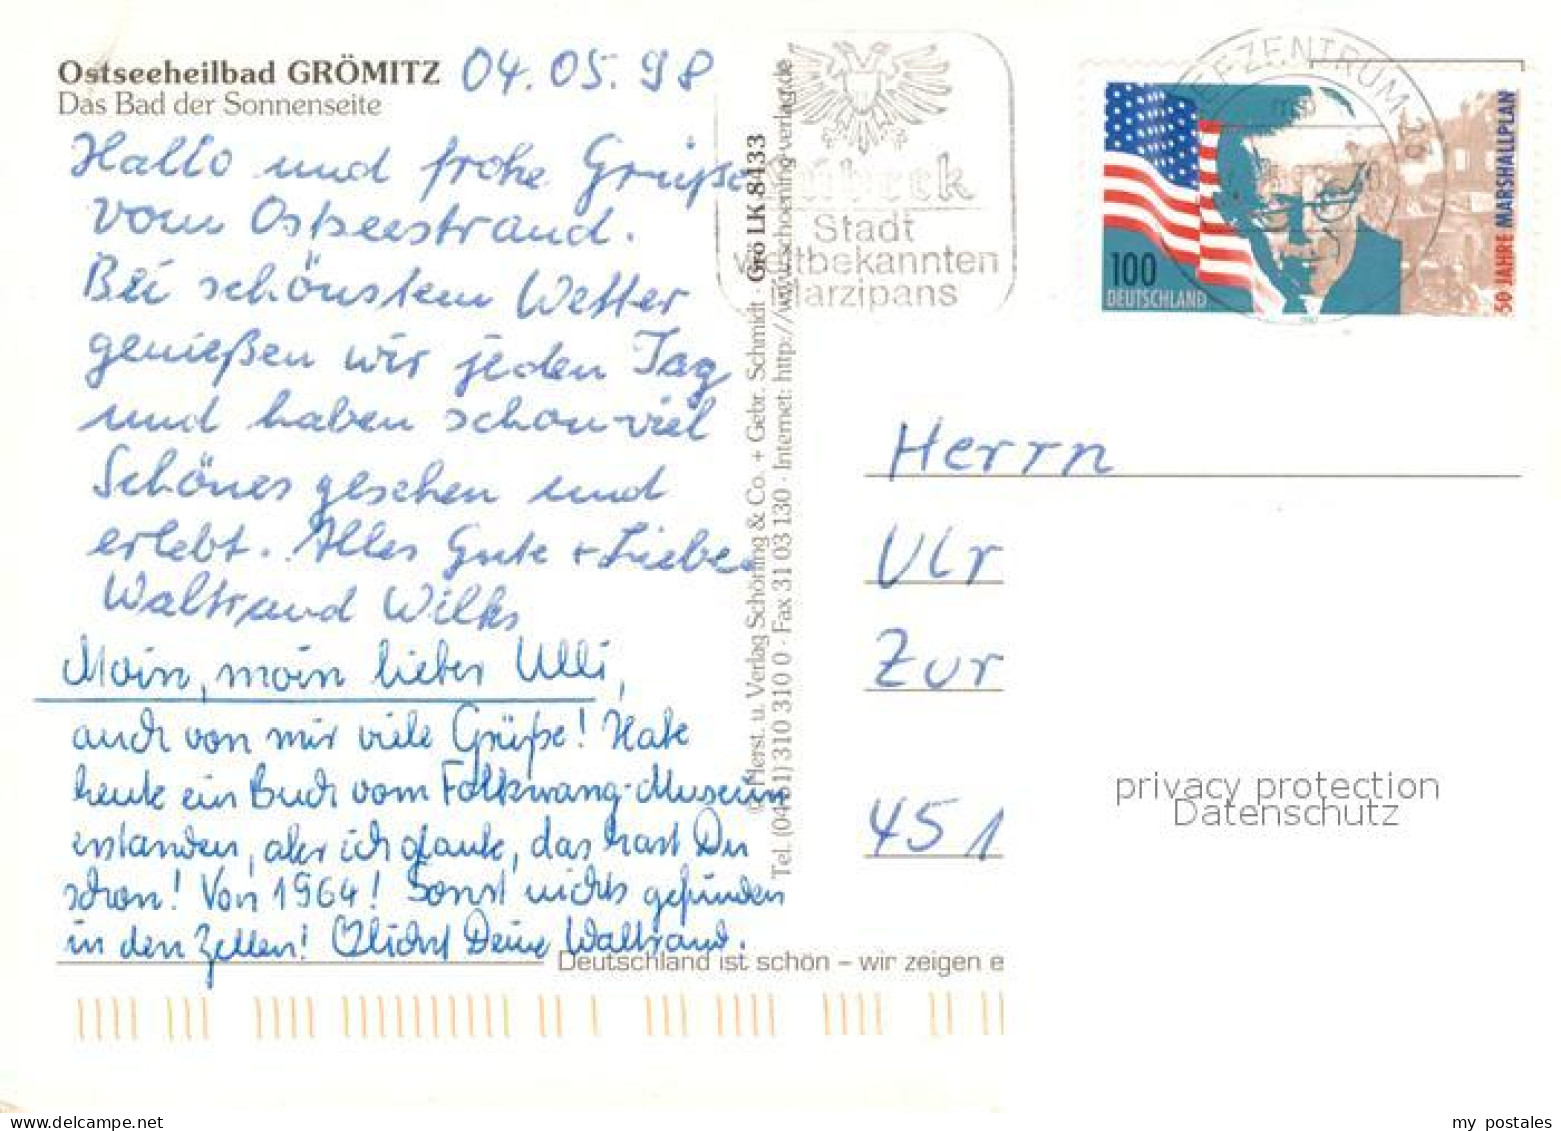 Ostseeheilbad GRÖMITZ 04.05.98
Das Bad der Sonnenseite
Hallo und frohe Grüße
vom Ostseestrand.
Bei schönstem Wetter
genießen wir jeden Tag
und haben schon viel
Schönes gesehen und
erlebt. Alles Gute + Liebe
Waltraud Wilks
Moin, moin lieber Ulli,
auch von mir viele Grüße! Habe
heute ein Buch vom Folkwang-Museum
erstanden, aber ich glaube, das hast Du
schon! Von 1964! Sonst nichts gefunden
in den Zelten! Deine Waltraud.
Deutschland ist schön – wir zeigen e
© Herst. u. Verlag Schöning & Co. + Gebr. Schmidt · Grö LK 8433
Tel. (0451) 310 310 0 · Fax 31 03 130 · Internet: http://www.schoening-verlag.de
Lübeck
Stadt
weltbekannten
Marzipans
BRIEFZENTRUM
100
DEUTSCHLAND
50 JAHRE MARSHALLPLAN
Herrn
Ulr
Zur
451
privacy protection
Datenschutz
my postales